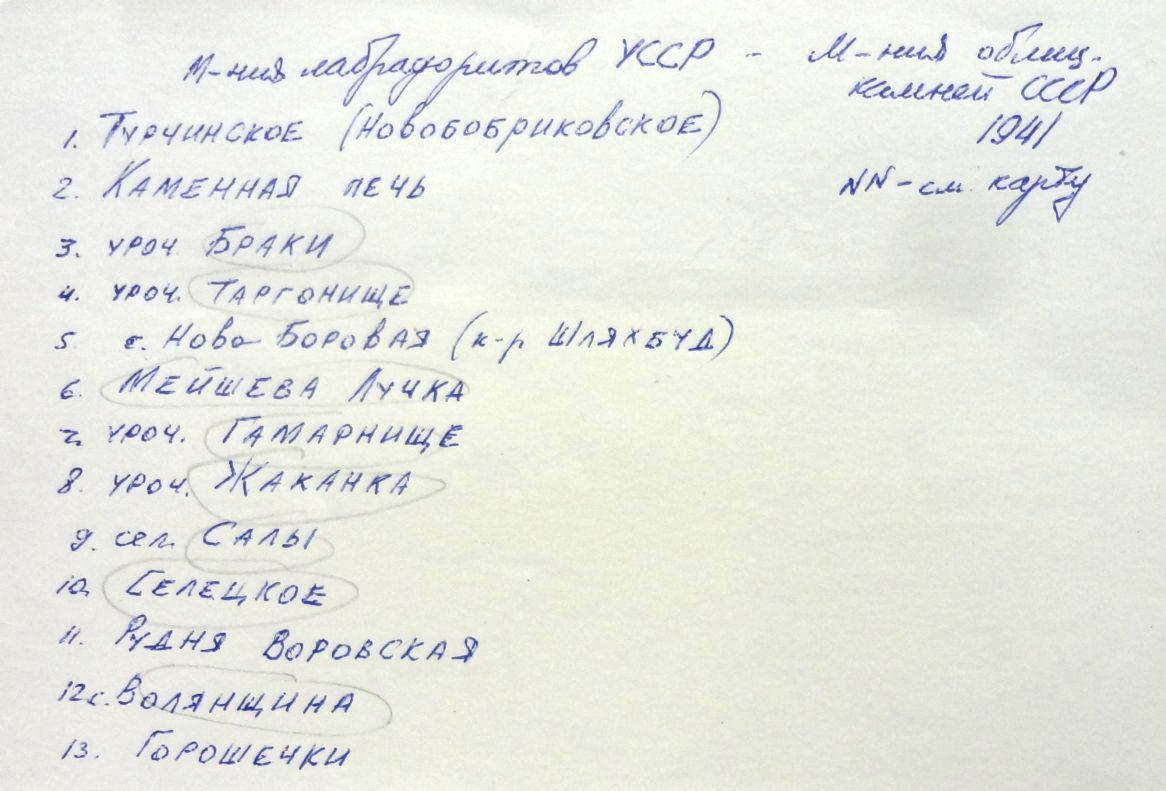 М-ния лабрадоритов УССР - М-ния облиц.
камней СССР
1941
NN-см. карту
1. Турчинское (Новобобриковское)
2. Каменная печь
3. уроч. Браки
4. уроч. Таргонище
5. с. Ново Боровая (к-р Шляхбуд)
6. Мейшева Лучка
7. уроч. Гамарнище
8. уроч. Жаканка
9. сел. Салы
10. Селецкое
11. Рудня Воровская
12. с. Волянщина
13. Горошечки